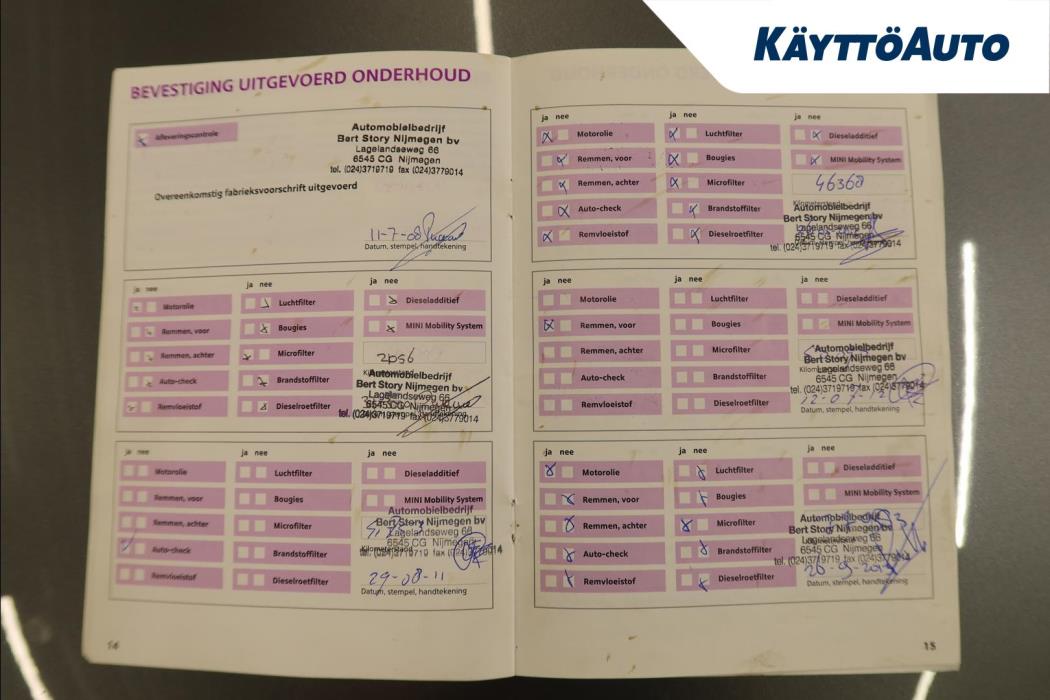 KÄYTTÖAUTO
BEVESTIGING UITGEVOERD ONDERHOUD
Afleveringscontrole
Automobielbedrijf
Bert Story Nijmegen bv
Lagelandseweg 66
6545 CG Nijmegen
tel. (024)3719719 fax (024)3779014
Overeenkomstig fabrieksvoorschrift uitgevoerd
11-7-08
Datum, stempel, handtekening
ja nee
Motorolie
Remmen, voor
Remmen, achter
Auto-check
Remvloeistof
ja nee
Luchtfilter
Bougies
Microfilter
Brandstoffilter
Dieseloliefilter
ja nee
Dieseladditief
MINI Mobility System
Automobielbedrijf
Bert Story Nijmegen bv
Lagelandseweg 66
6545 CG Nijmegen
tel. (024)3719719 fax (024)3779014
ja nee
Motorolie
Remmen, voor
Remmen, achter
Auto-check
Remvloeistof
ja nee
Luchtfilter
Bougies
Microfilter
Brandstoffilter
Dieseloliefilter
ja nee
Dieseladditief
MINI Mobility System
Automobielbedrijf
Bert Story Nijmegen bv
Lagelandseweg 66
6545 CG Nijmegen
29-08-11
Datum, stempel, handtekening
14
ja nee
Motorolie
Remmen, voor
Remmen, achter
Auto-check
Remvloeistof
ja nee
Luchtfilter
Bougies
Microfilter
Brandstoffilter
Dieseloliefilter
ja nee
Dieseladditief
MINI Mobility System
46368
Automobielbedrijf
Bert Story Nijmegen bv
Lagelandseweg 66
6545 CG Nijmegen
tel. (024)3719719 fax (024)3779014
ja nee
Motorolie
Remmen, voor
Remmen, achter
Auto-check
Remvloeistof
ja nee
Luchtfilter
Bougies
Microfilter
Brandstoffilter
Dieseloliefilter
ja nee
Dieseladditief
MINI Mobility System
Automobielbedrijf
Bert Story Nijmegen bv
Lagelandseweg 66
6545 CG Nijmegen
tel. (024)3719719 fax (024)3779014
Datum, stempel, handtekening
ja nee
Motorolie
Remmen, voor
Remmen, achter
Auto-check
Remvloeistof
ja nee
Luchtfilter
Bougies
Microfilter
Brandstoffilter
Dieseloliefilter
ja nee
Dieseladditief
MINI Mobility System
Automobielbedrijf
Bert Story Nijmegen bv
Lagelandseweg 66
6545 CG Nijmegen
tel. (024)3719719 fax (024)3779014
Datum, stempel, handtekening
15